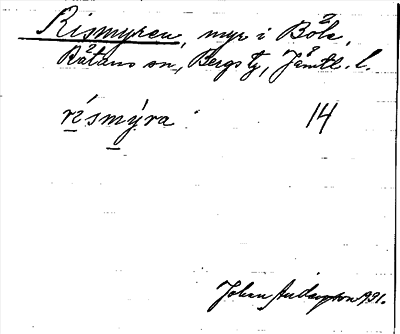 Rismyren, myr i Böle,
Rätans sn, Bergs tg, Jämtl. l.
rı́smýra 14
Johan Anderson 1931.